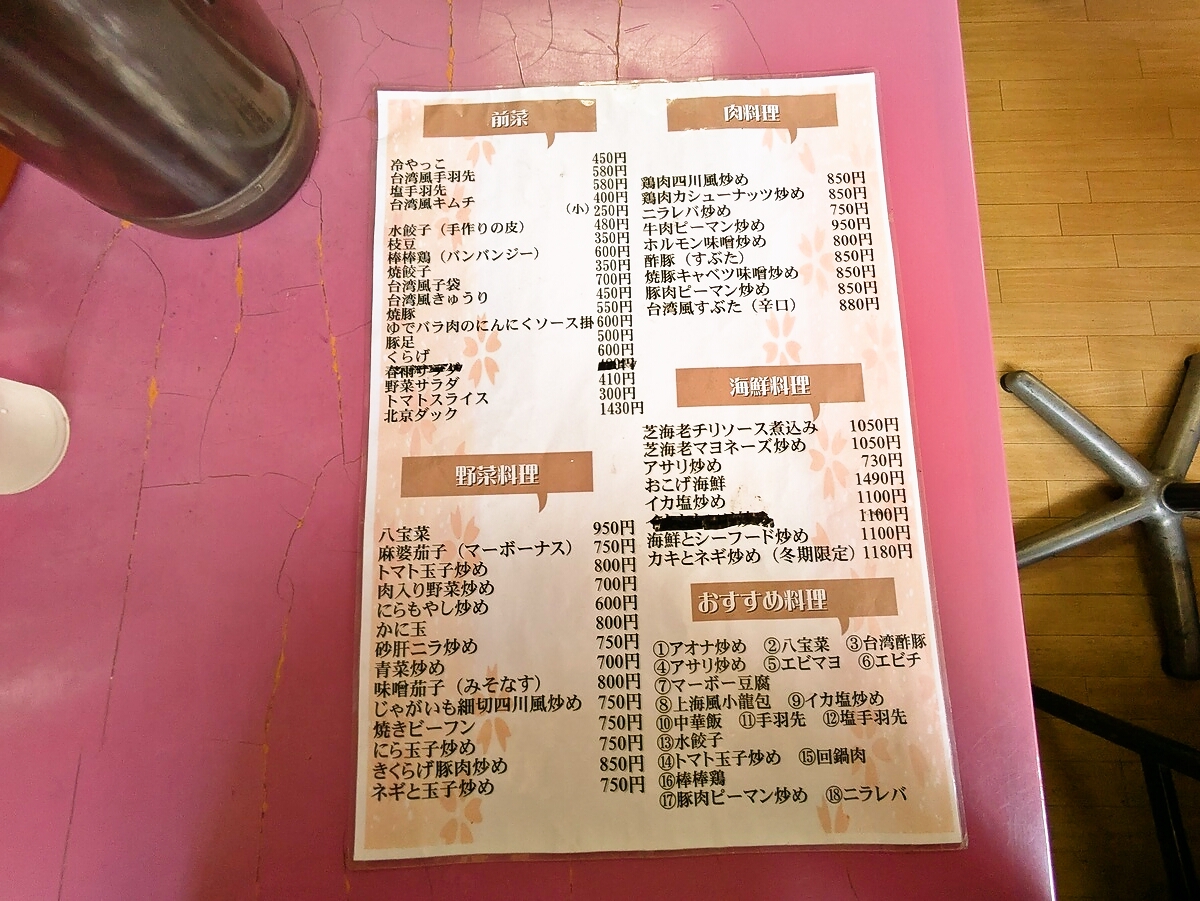 前菜
冷やっこ 450円
台湾風手羽先 580円
塩手羽先 580円
台湾風キムチ 400円
（小）250円
水餃子（手作りの皮） 480円
枝豆 350円
棒棒鶏（バンバンジー） 600円
焼餃子 350円
台湾風子袋 700円
台湾風きゅうり 450円
焼豚 550円
ゆでバラ肉のにんにくソース掛 600円
豚足 500円
くらげ 600円
野菜サラダ 410円
トマトスライス 300円
北京ダック 1430円
野菜料理
八宝菜 950円
麻婆茄子（マーボーナス） 750円
トマト玉子炒め 800円
肉入り野菜炒め 700円
にらもやし炒め 600円
かに玉 800円
砂肝ニラ炒め 750円
青菜炒め 700円
味噌茄子（みそなす） 800円
じゃがいも細切四川風炒め 750円
焼きビーフン 750円
にら玉子炒め 750円
きくらげ豚肉炒め 850円
ネギと玉子炒め 750円
肉料理
鶏肉四川風炒め 850円
鶏肉カシューナッツ炒め 850円
ニラレバ炒め 750円
牛肉ピーマン炒め 950円
ホルモン味噌炒め 800円
酢豚（すぶた） 850円
焼豚キャベツ味噌炒め 850円
豚肉ピーマン炒め 850円
台湾風すぶた（辛口） 880円
海鮮料理
芝海老チリソース煮込み 1050円
芝海老マヨネーズ炒め 1050円
アサリ炒め 730円
おこげ海鮮 1490円
イカ塩炒め 1100円
1100円
海鮮とシーフード炒め 1100円
カキとネギ炒め（冬期限定） 1180円
おすすめ料理
①アオナ炒め ②八宝菜 ③台湾酢豚
④アサリ炒め ⑤エビマヨ ⑥エビチ
⑦マーボー豆腐
⑧上海風小龍包 ⑨イカ塩炒め
⑩中華飯 ⑪手羽先 ⑫塩手羽先
⑬水餃子
⑭トマト玉子炒め ⑮回鍋肉
⑯棒棒鶏
⑰豚肉ピーマン炒め ⑱ニラレバ